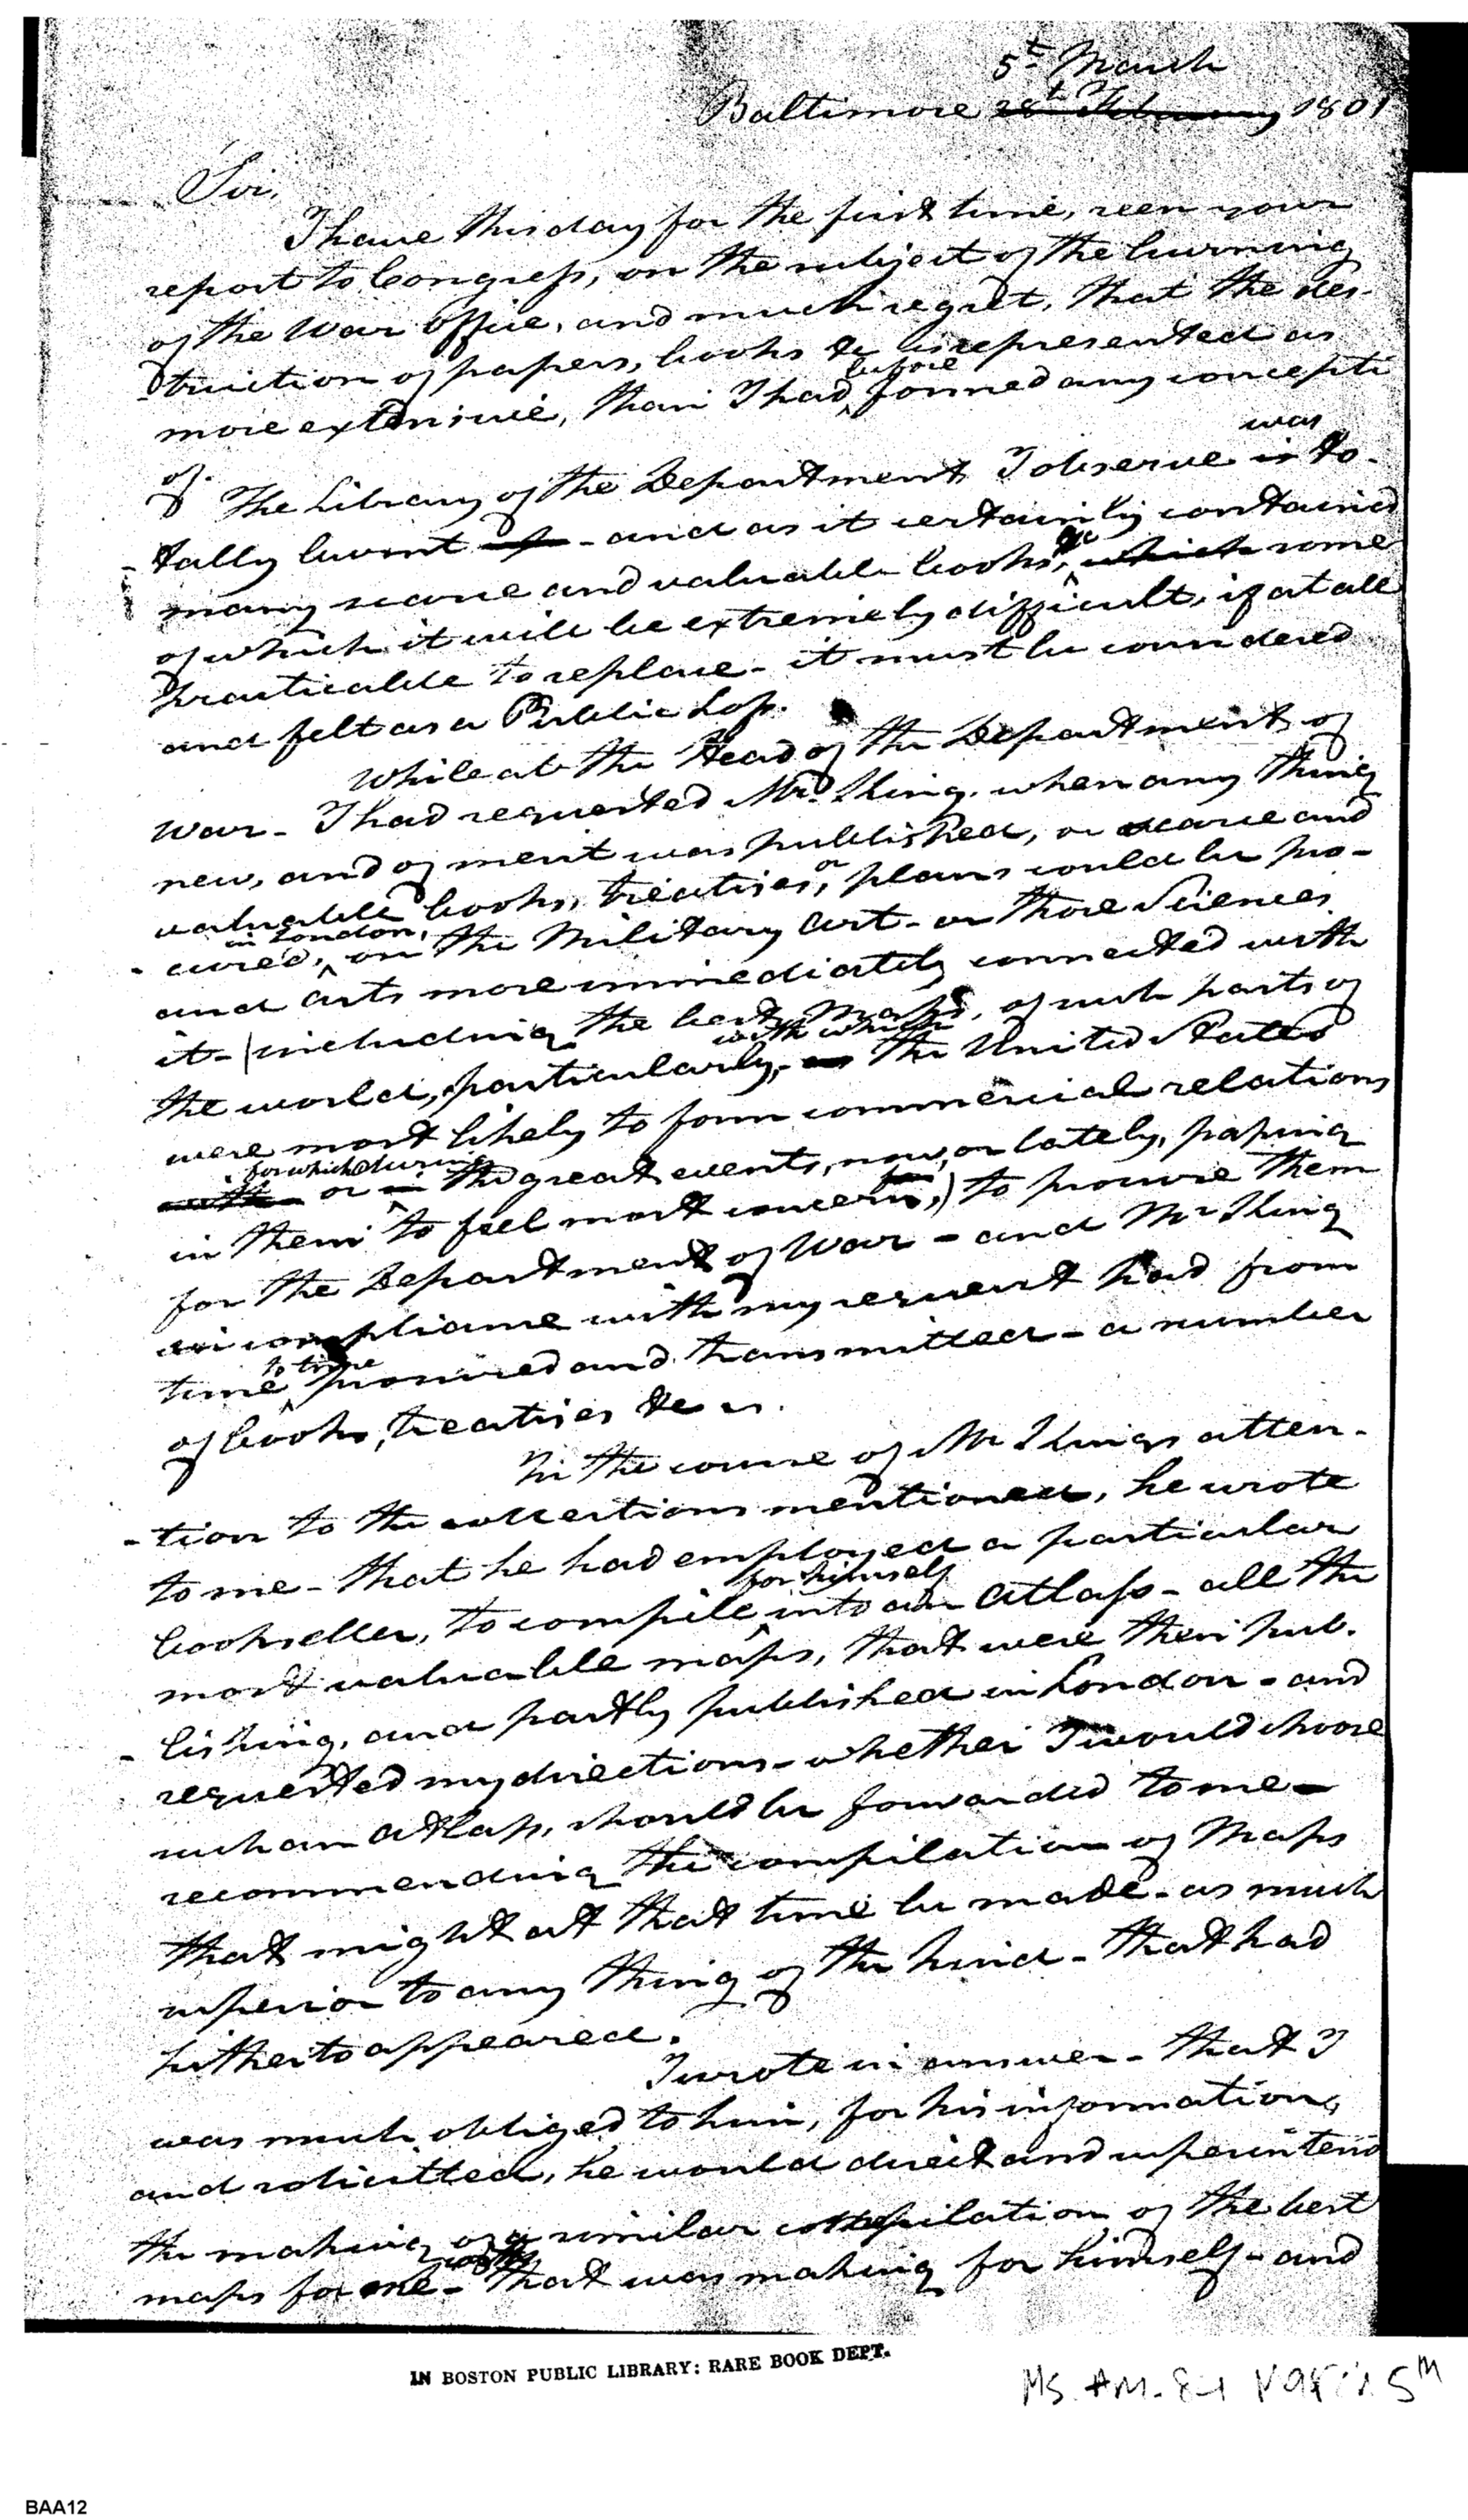 5th March
Baltimore 28th February 1801
Sir,
I have this day for the first time, seen your
report to Congress, on the subject of the burning
of the War Office, and much regret, that the des-
truction of papers, books &c is represented as
before
more extensive, than I had formed any concepti
was
of. The Library of the Department I observe is to-
tally burnt - and as it certainly contained
many scarce and valuable books, &c which some
of which it will be extremely difficult, if at all
practicable to replace - it must be considered
and felt as a Public Loss.
While at the Head of the Department of
War - I had requested Mr. King, when any thing
new, and of merit was published, or scarce and
valuable books, treatises, or plans could be pro-
in London,
cured, on the Military art - or those Sciences
and arts more immediately connected with
it - (including the best Maps, of such parts of
with which
the world, particularly, as the United States
were most likely to form commercial relations
for which during
with or in the great events, now, or lately, passing
in them to feel most concern,) to procure them
for the Department of War - and Mr King
in compliance with my request had from
to time
time procured and transmitted - a number
of books, treatises &c &c.
In the course of Mr Kings atten-
-tion to the collections mentioned, he wrote
to me - that he had employed a particular
for himself
bookseller, to compile into an Atlass - all the
most valuable maps, that were then pub-
-lishing, and partly published in London - and
requested my directions - whether I would choose
such an Atlass, should be forwarded to me -
recommending the compilation of Maps
that might at that time be made - as much
superior to any thing of the kind - that had
hitherto appeared.
I wrote in answer - that I
was much obliged to him, for his information,
and solicitted, he would direct and superintend
the making of a similar compilation of the best
with
maps for me - that was making for himself - and
IN BOSTON PUBLIC LIBRARY: RARE BOOK DEPT.
BAA12